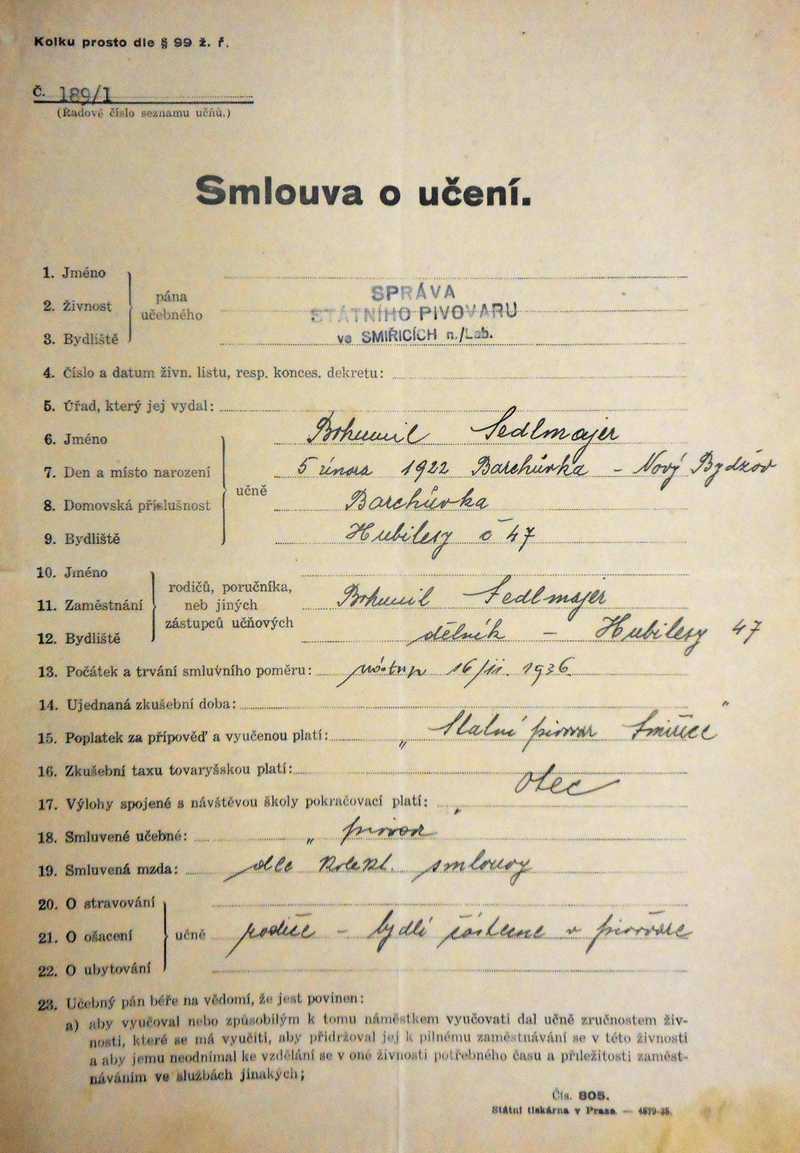 Kolku prosto dle § 99 ž. ř.
Č. 189/1
(Řadové číslo seznamu učňů.)
Smlouva o učení.
1. Jméno
2. Živnost
3. Bydliště
pána
učebného
SPRÁVA
STÁTNÍHO PIVOVARU
ve SMIŘICÍCH n./Lab.
4. Číslo a datum živn. listu, resp. konces. dekretu:
5. Úřad, který jej vydal:
6. Jméno Bohumil Sedlmajer
7. Den a místo narození 5 února 1922 Barchůvka - Nový Bydžov
8. Domovská příslušnost Barchůvka
učně
9. Bydliště Hubilesy č 47
10. Jméno
11. Zaměstnání
12. Bydliště
rodičů, poručníka,
neb jiných
zástupců učňových
Bohumil Sedlmajer
dělník - Hubilesy 47
13. Počátek a trvání smluvního poměru: 16/II. 1936.
14. Ujednaná zkušební doba:
15. Poplatek za přípověď a vyučenou platí: „Statní pivovar Smiřice"
16. Zkušební taxu tovaryšskou platí: otec
17. Výlohy spojené s návštěvou školy pokračovací platí: "
18. Smluvené učebné: „
19. Smluvená mzda: dle kolekt. smlouvy
20. O stravování
21. O ošacení
22. O ubytování
učně
rodiče - bydlí částečně v pivováře
23. Učebný pán béře na vědomí, že jest povinen:
a) aby vyučoval nebo způsobilým k tomu náměstkem vyučovati dal učně zručnostem živ-
nosti, které se má vyučiti, aby přidržoval jej k pilnému zaměstnávání se v této živnosti
a aby jemu neodnímal ke vzdělání se v oné živnosti potřebného času a příležitosti zaměst-
náváním ve službách jinakých;
Čís. 805.
Státní tiskárna v Praze — 4879-35.